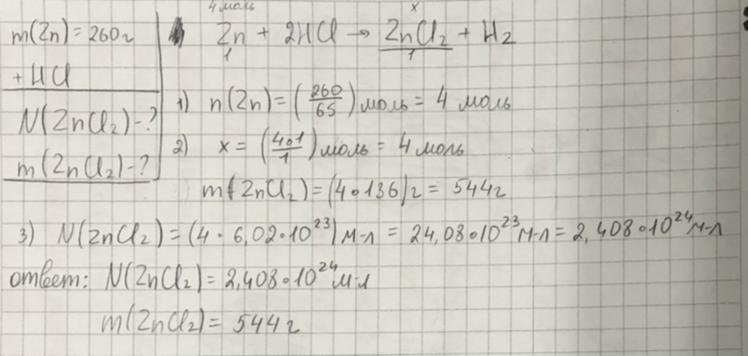 4 моль x
m(Zn) = 260г
Zn + 2HCl → ZnCl₂ + H₂
1 1
+ HCl
N(ZnCl₂) - ?
m(ZnCl₂) - ?
1) n(Zn) = (260/65) моль = 4 моль
2) x = (4∘1/1) моль = 4 моль
m(ZnCl₂) = (4∘136)г = 544г
3) N(ZnCl₂) = (4 · 6,02·10²³) м-л = 24,08∘10²³ м-л = 2,408∘10²⁴ м-л
ответ: N(ZnCl₂) = 2,408∘10²⁴ м-л
m(ZnCl₂) = 544г